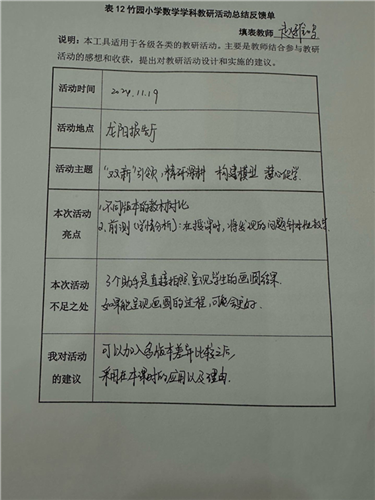 表12 竹园小学数学学科教研活动总结反馈单
填表教师
说明：本工具适用于各级各类的教研活动。主要是教师结合参与教研
活动的感想和收获，提出对教研活动设计和实施的建议。
活动时间 2024.11.19
活动地点 龙阳报告厅
活动主题 “双新”引领，精研课料 构建模型 慧心化学.
本次活动
亮点
1.不同版本的教材对比
2.前测（学情分析）：在授课时，将发现的问题针对性教学.
本次活动
不足之处
3个助手是直接拍照呈现学生的画图结果.
如果能呈现画图的过程，可能会更好.
我对活动
的建议
可以加入多版本差异比较之后，
采用在本课时的应用以及理由.